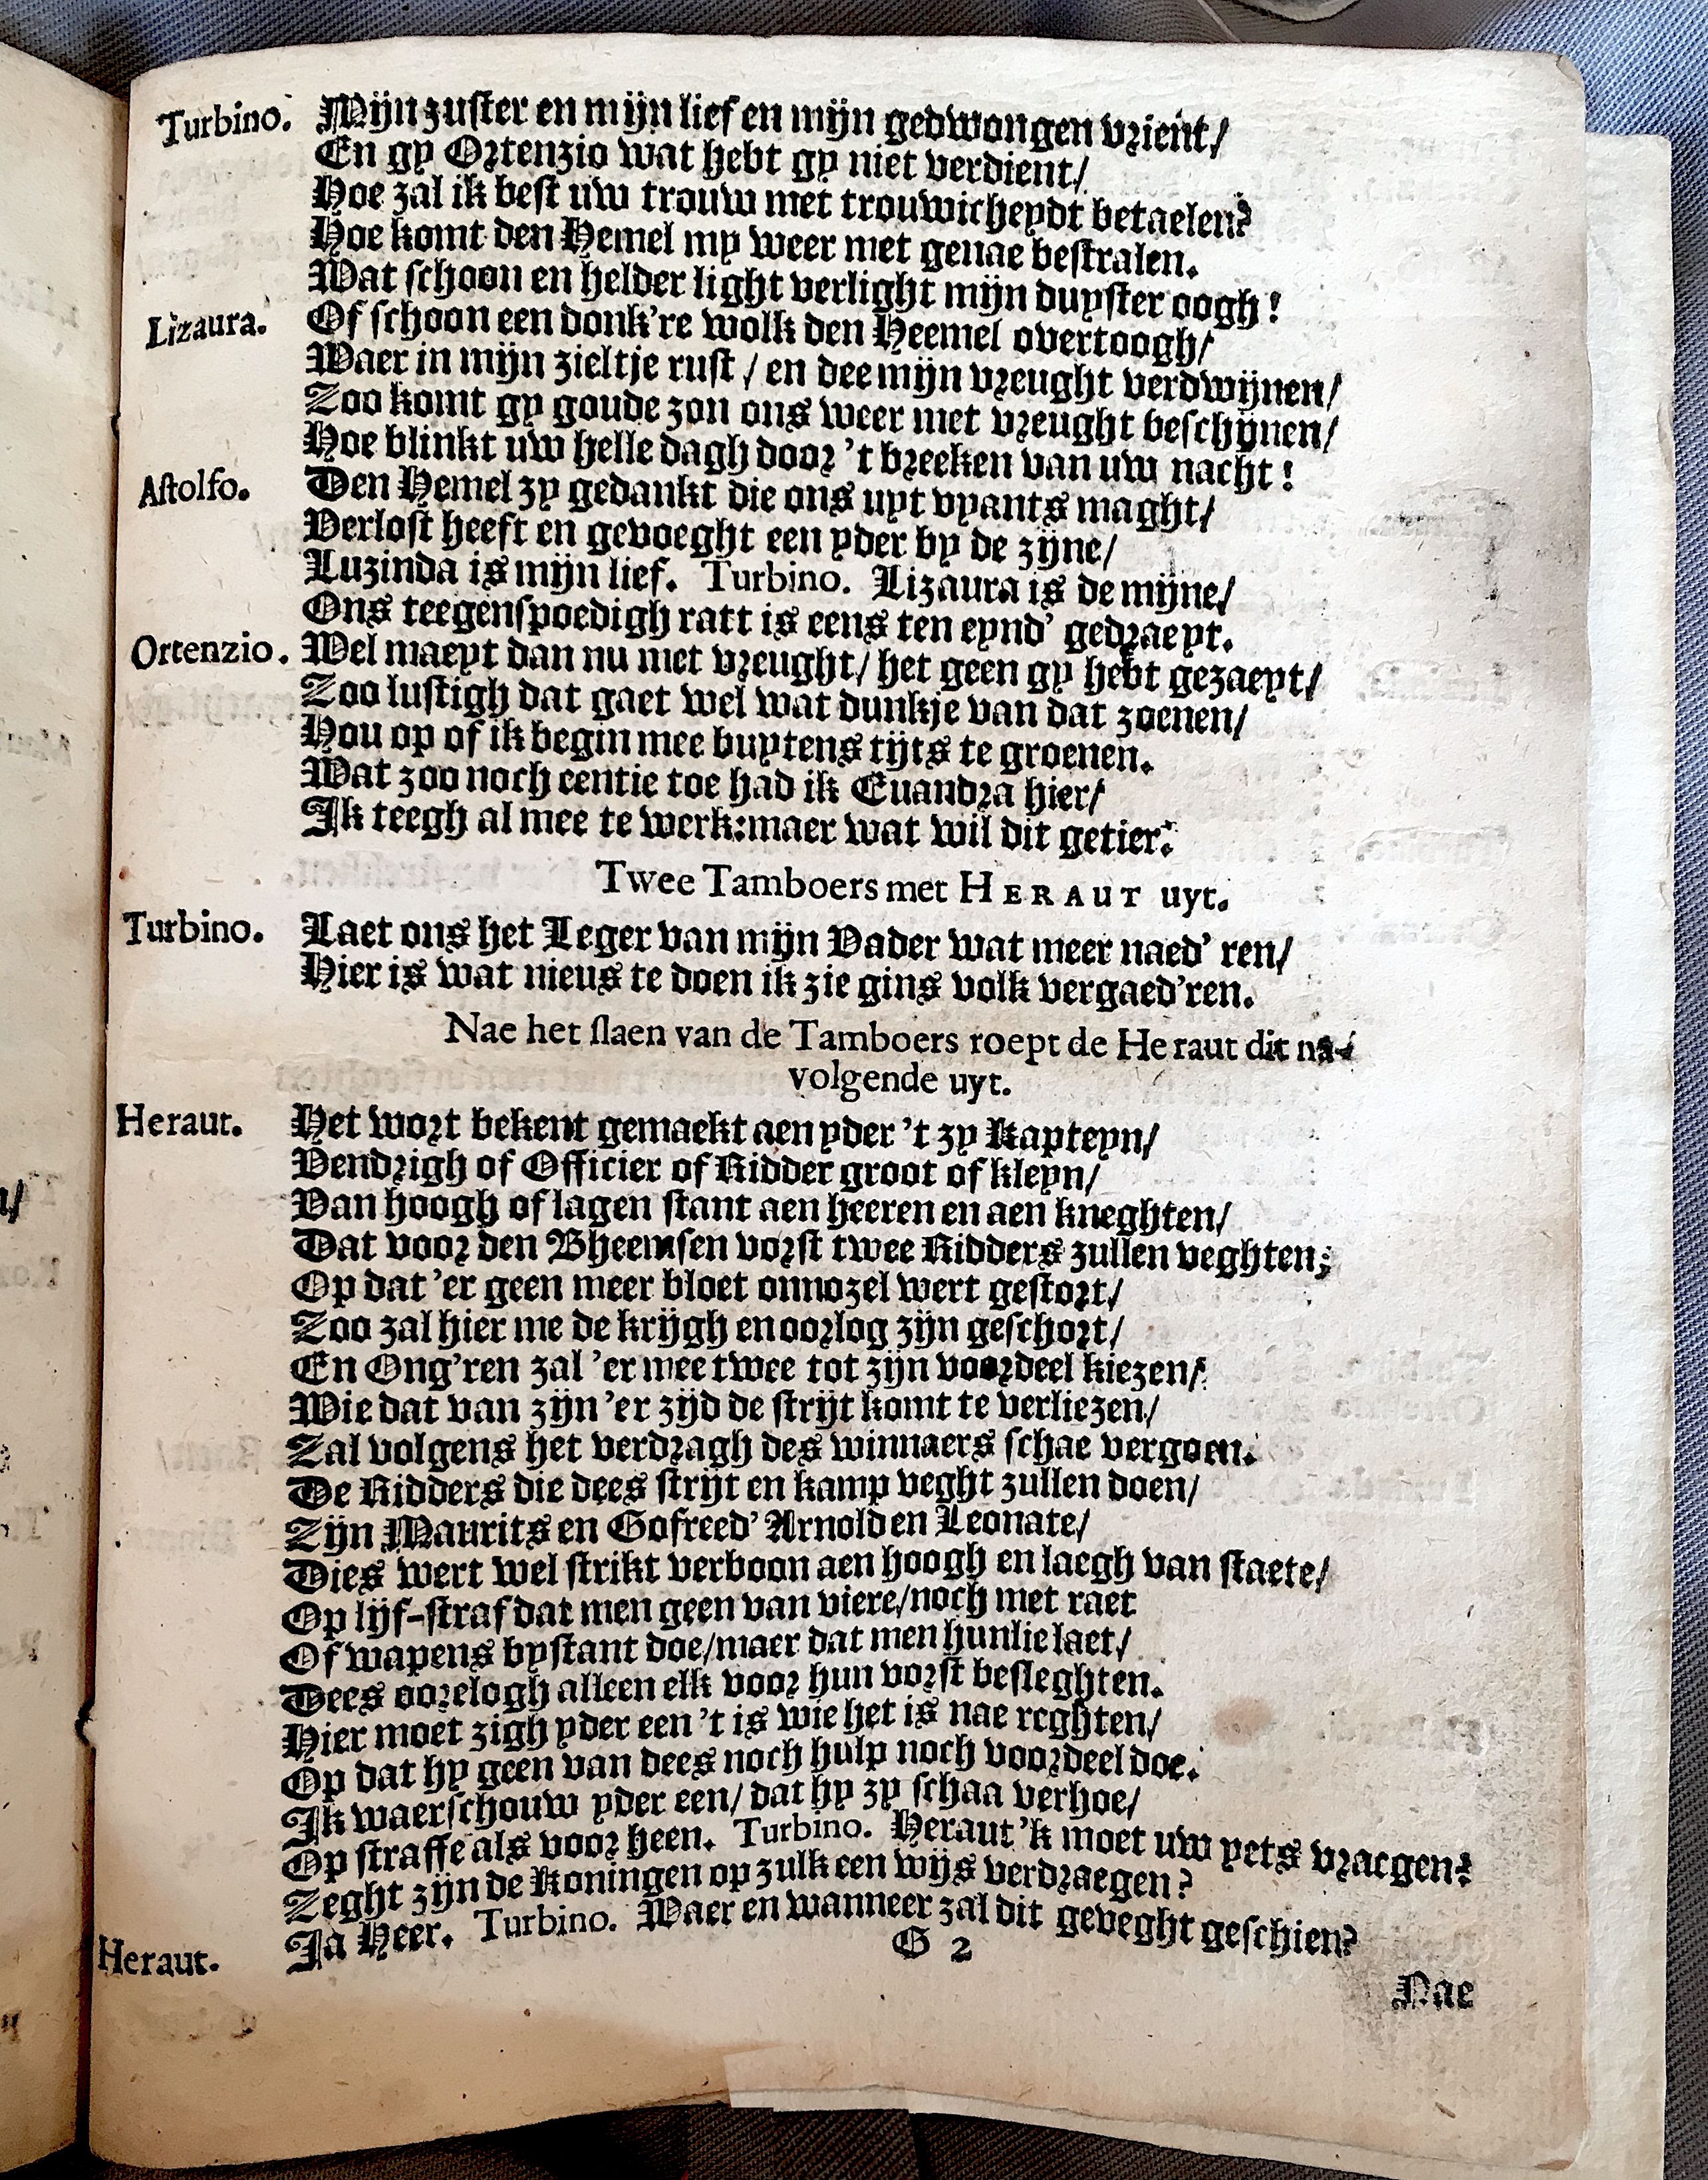 Turbino. Mijn zuster en mijn lief en mijn gedwongen vrient/
En gy Ortenzio wat hebt gy niet verdient/
Hoe zal ik best uw trouw met trouwicheydt betaelen?
Hoe komt den Hemel my weer met genae bestralen.
Wat schoon en helder light verlight mijn duyster oogh!
Lizaura. Of schoon een donk're wolk den Heemel overtoogh/
Waer in mijn zieltje rust / en dee mijn vreught verdwijnen/
Zoo komt gy goude zon ons weer met vreught beschijnen/
Hoe blinkt uw helle dagh door 't breeken van uw nacht!
Astolfo. Den Hemel zy gedankt die ons uyt vyants maght/
Verlost heeft en gevoeght een yder by de zijne/
Luzinda is mijn lief. Turbino. Lizaura is de mijne/
Ons teegenspoedigh ratt is eens ten eynd' gedraeyt.
Ortenzio. Wel maeyt dan nu met vreught/ het geen gy hebt gezaeyt/
Zoo lustigh dat gaet wel wat dunkje van dat zoenen/
Hou op of ik begin mee buytens tijts te groenen.
Wat zoo noch eentie toe had ik Euandra hier/
Ik teegh al mee te werk: maer wat wil dit getier.
Twee Tamboers met HERAUT uyt.
Turbino. Laet ons het Leger van mijn Vader wat meer naed'ren/
Hier is wat nieus te doen ik zie gins volk vergaed'ren.
Nae het slaen van de Tamboers roept de Heraut dit na-
volgende uyt.
Heraut. Het wort bekent gemaekt aen yder 't zy Kapteyn/
Vendrigh of Officier of Ridder groot of kleyn/
Van hoogh of lagen stant aen heeren en aen kneghten/
Dat voor den Bheemsen vorst twee Ridders zullen veghten;
Op dat 'er geen meer bloet onnozel wert gestort/
Zoo zal hier me de krijgh en oorlog zijn geschort/
En Ong'ren zal 'er mee twee tot zijn voordeel kiezen/
Wie dat van zijn 'er zijd de strijt komt te verliezen/
Zal volgens het verdragh des winnaers schae vergoen.
De Ridders die dees strijt en kamp veght zullen doen/
Zijn Maurits en Gofreed' Arnold en Leonate/
Dies wert wel strikt verboon aen hoogh en laegh van staete/
Op lijf-straf dat men geen van viere/noch met raet
Of wapens bystant doe/maer dat men hunlie laet/
Dees oorelogh alleen elk voor hun vorst besleghten.
Hier moet zigh yder een 't is wie het is nae reghten/
Op dat hy geen van dees noch hulp noch voordeel doe.
Ik waerschouw yder een/ dat hy zy schaa verhoe/
Op straffe als voor heen. Turbino. Heraut 'k moet uw yets vraegen?
Zeght zijn de Koningen op zulk een wijs verdraegen?
Heraut. Ja Heer. Turbino. Waer en wanneer zal dit geveght geschien?
G 2
Nae